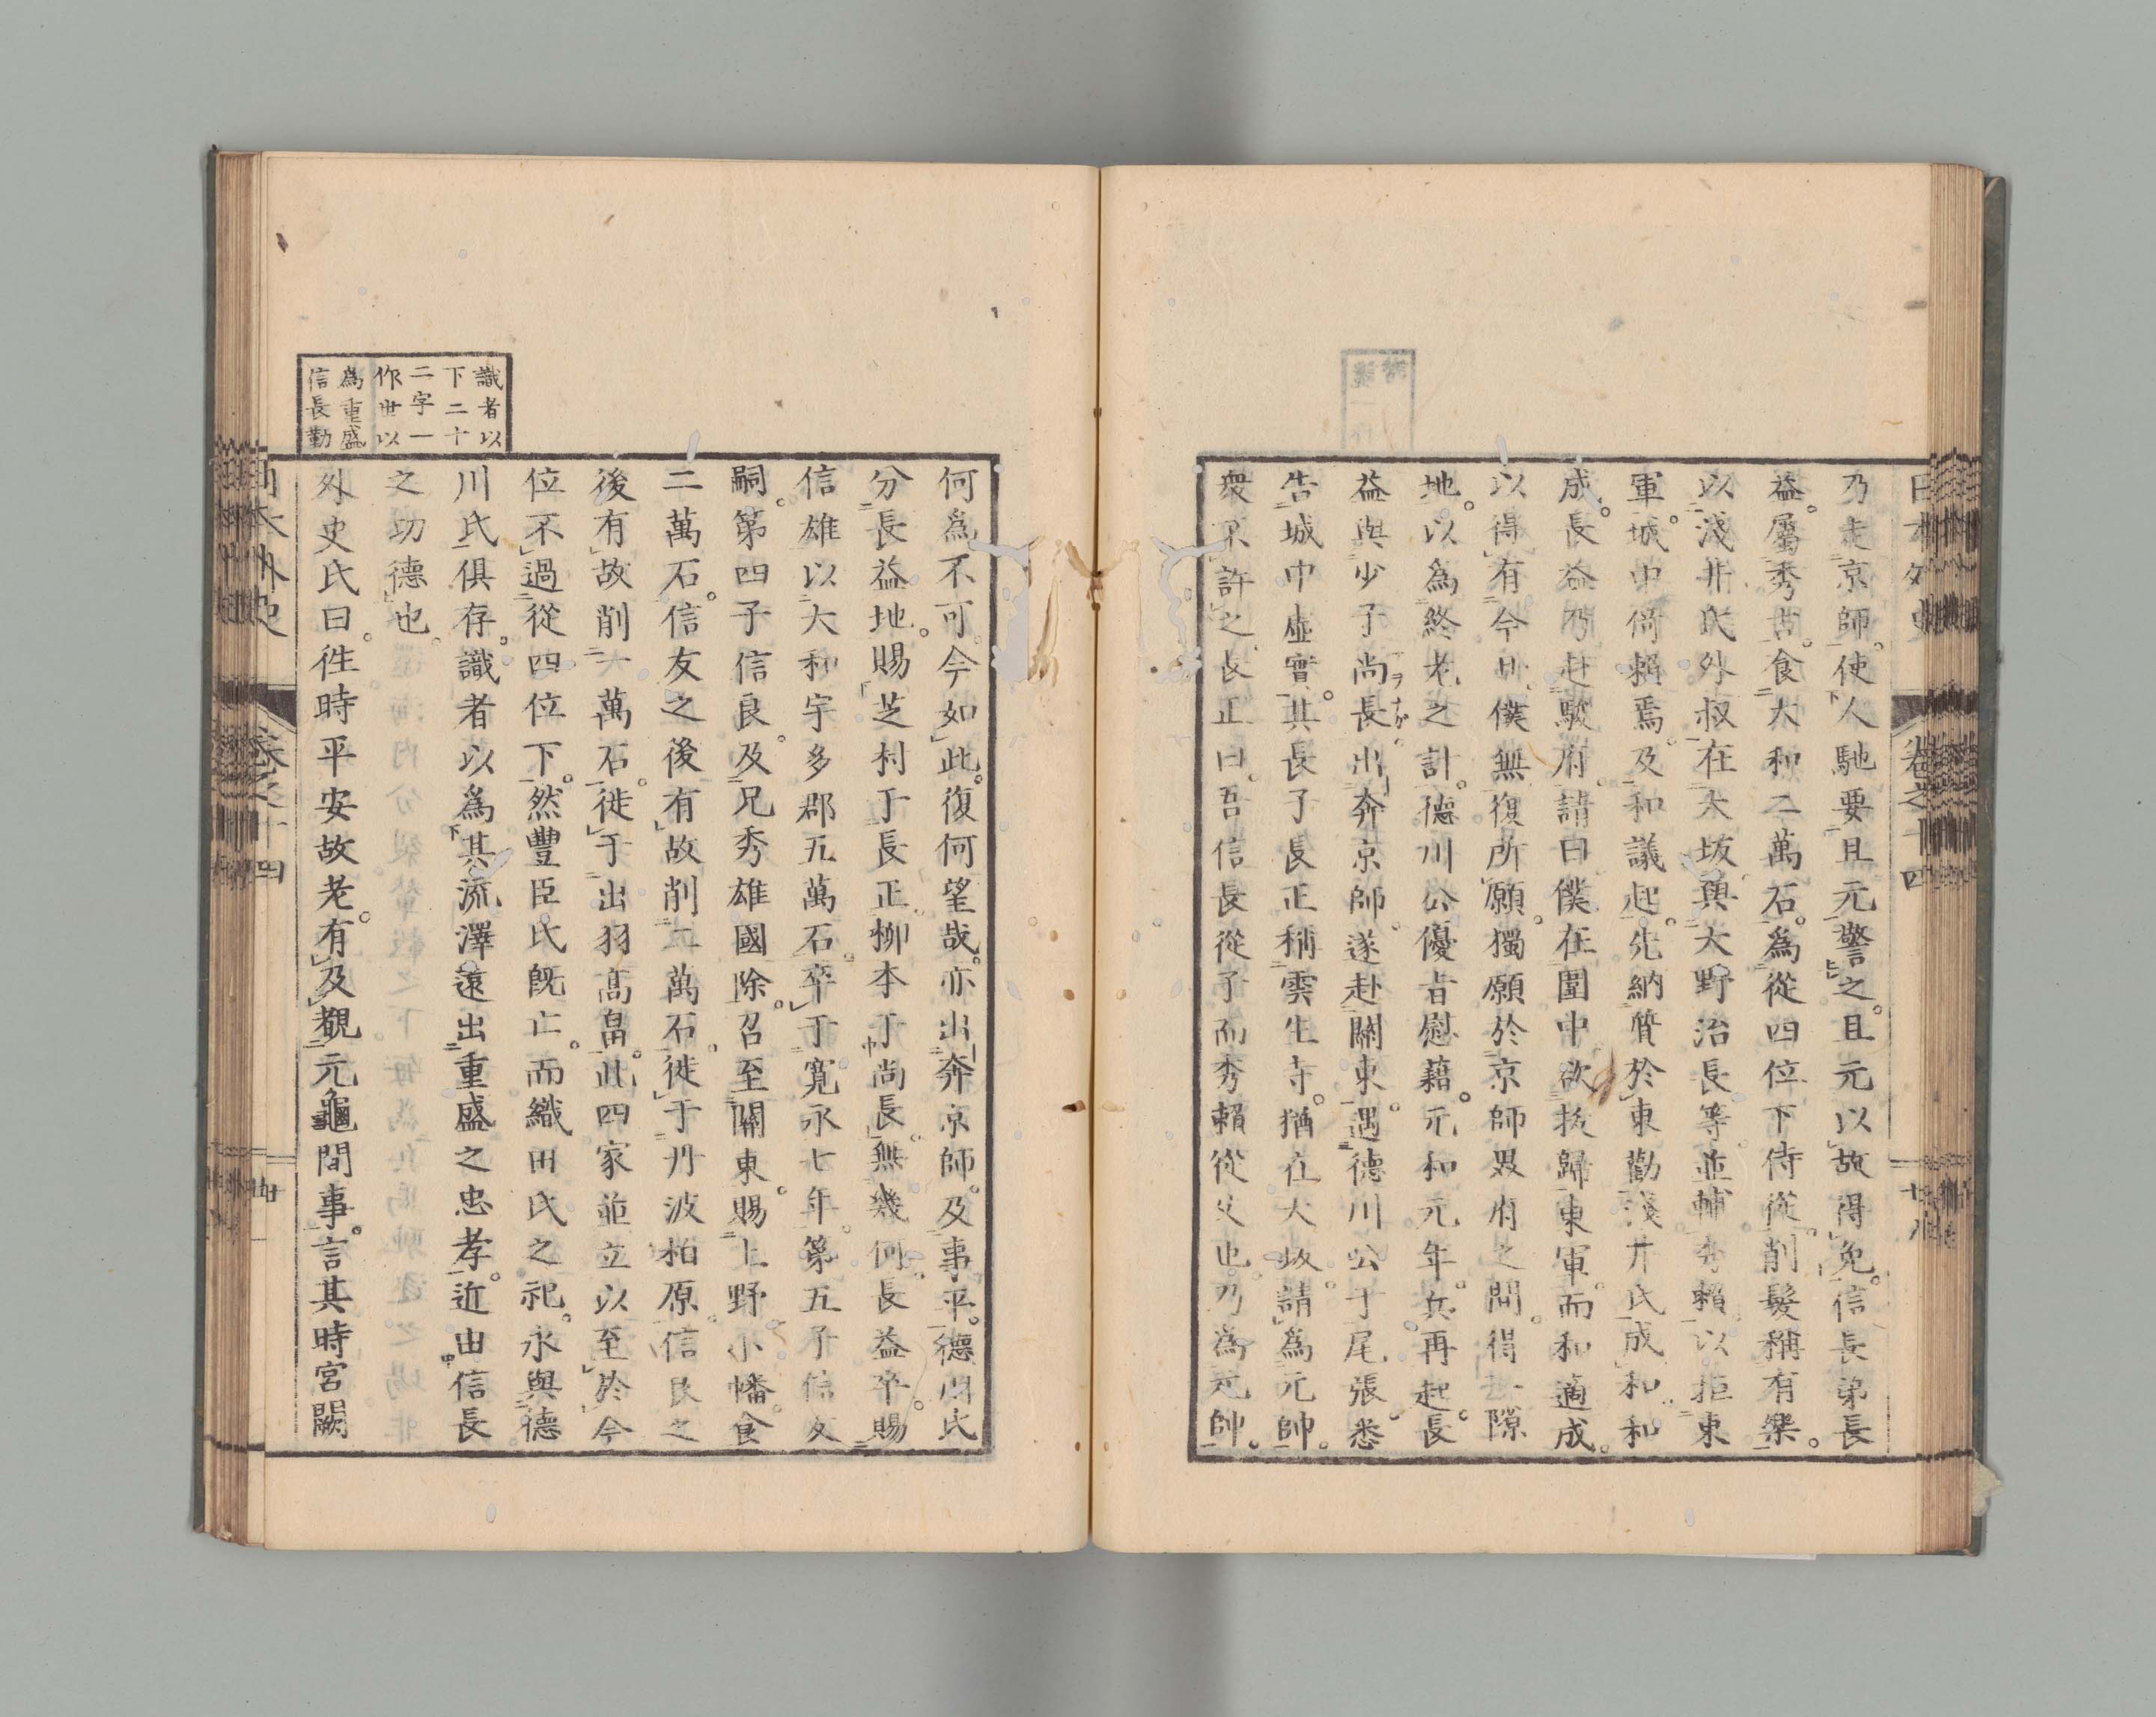 日本外史 卷之十四
乃走京師。使人馳要且元警之。且元以故得免。信長弟長
益。屬秀吉。食大和二萬石。為從四位下侍從。削髮稱有樂。
以淺井氏外叔在大坂。與大野治長等。並輔秀賴。以拒東
軍。城中倚賴焉。及和議起。先納質於東。勸淺井氏成和。和
成。長益乃赴駿府。請曰。僕在圍中。欲拔歸東軍。而和適成。
以得有今日。僕無復所願。獨願於京師畏府之間。得一隙
地。以為終老之計。德川公優旨慰藉。元和元年。兵再起。長
益與少子尚長出奔京師。遂赴關東。遇德川公于尾張。悉
告城中虛實。其長子長正稱雲生寺。猶在大坂。請為元帥。
衆不許之。長正曰。吾信長從子。而秀賴從父也。乃為元帥。
何為不可。今如此。復何望哉。亦出奔京師。及事平。德川氏
分長益地。賜芝村于長正。柳本于尚長。無幾何長益卒。賜
信雄以大和宇多郡五萬石。卒于寬永七年。第五子信友
嗣。第四子信良。及兄秀雄國除。召至關東。賜上野小幡食
二萬石。信友之後有故。削二萬石。徙于丹波柏原。信良之
後有故。削六萬石。徙于出羽高畠。此四家並立以至於今
位不過從四位下。然豐臣氏既亡。而織田氏之祀。永與德
川氏俱存。識者以為其流澤遠出重盛之忠孝。近由信長
之功德也。
外史氏曰。往時平安故老。有及覩元龜間事。言其時宮闕
識者以
下二十
二字一
作世以
為重盛
信長勤
日本外史 卷之十四